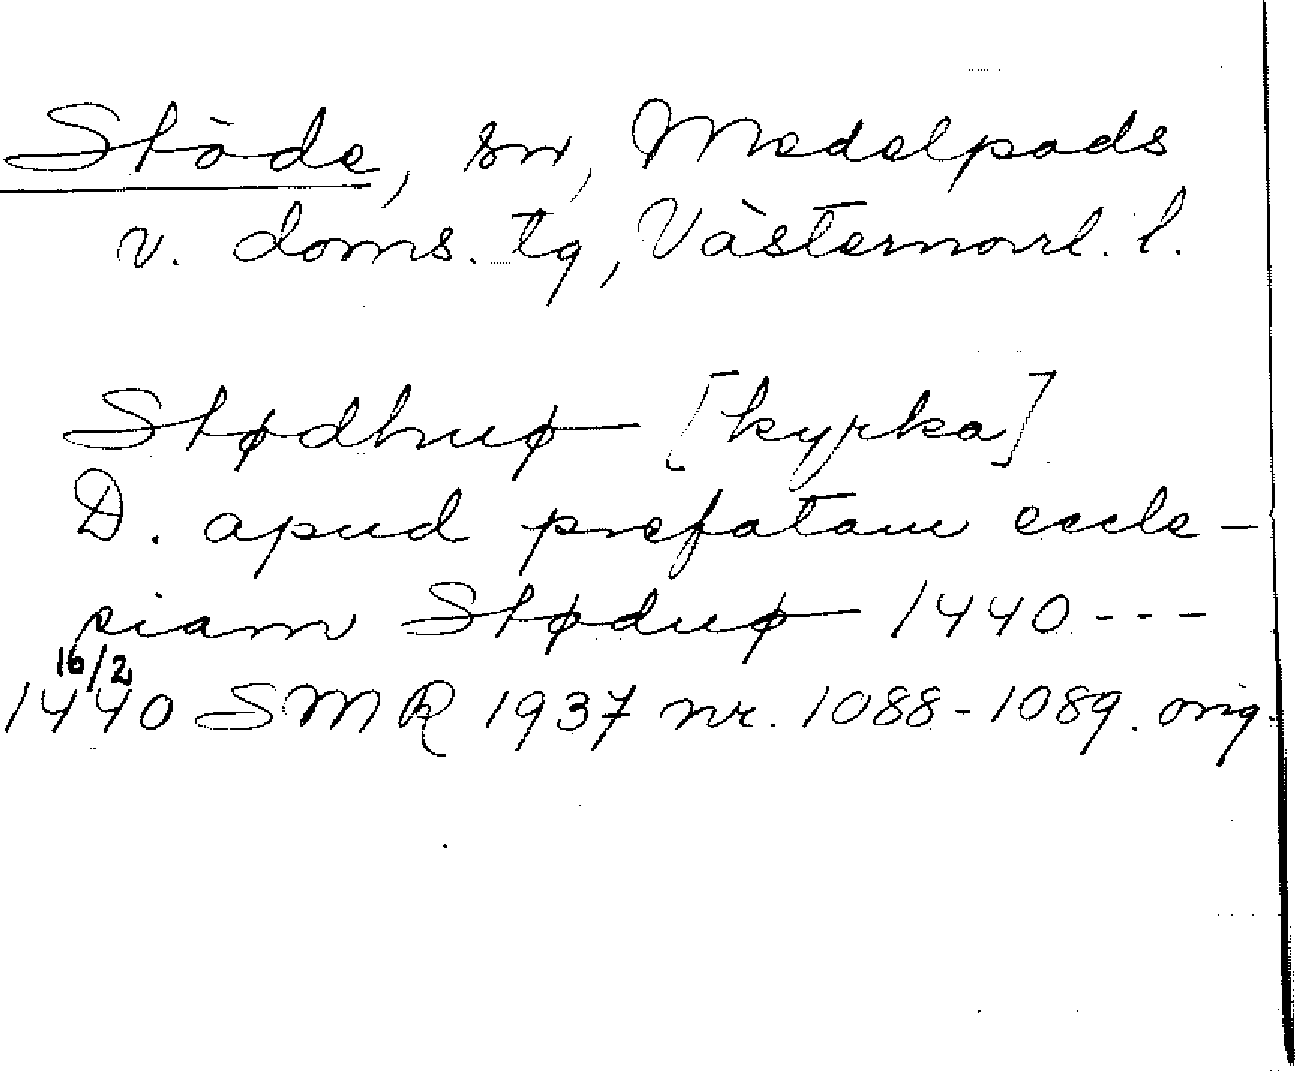 Stöde, sn, Medelpads
v. doms. tg, Västernorrl. l.
Stødhuø [kyrka]
D. apud prefatam eccle-
siam Støduø 1440 ---
16/2
1440 SMR 1937 nr. 1088-1089. orig.